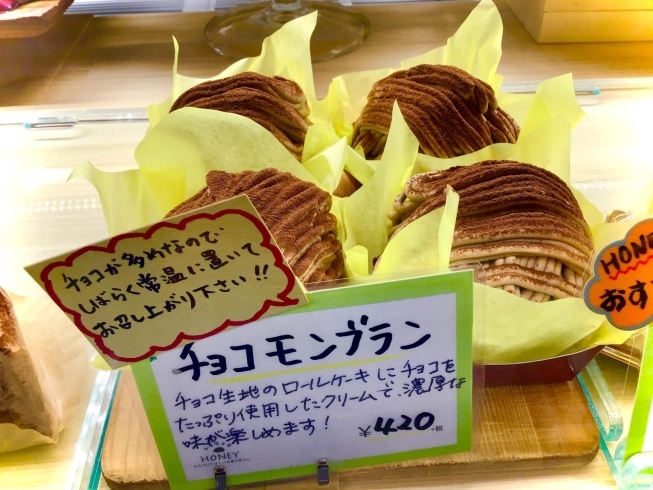 チョコが多めなので
しばらく常温に置いて
お召し上がり下さい!!
チョコモンブラン
チョコ生地のロールケーキにチョコを
たっぷり使用したクリームで、濃厚な
味が楽しめます!
¥420
HONEY
HONEY
おす